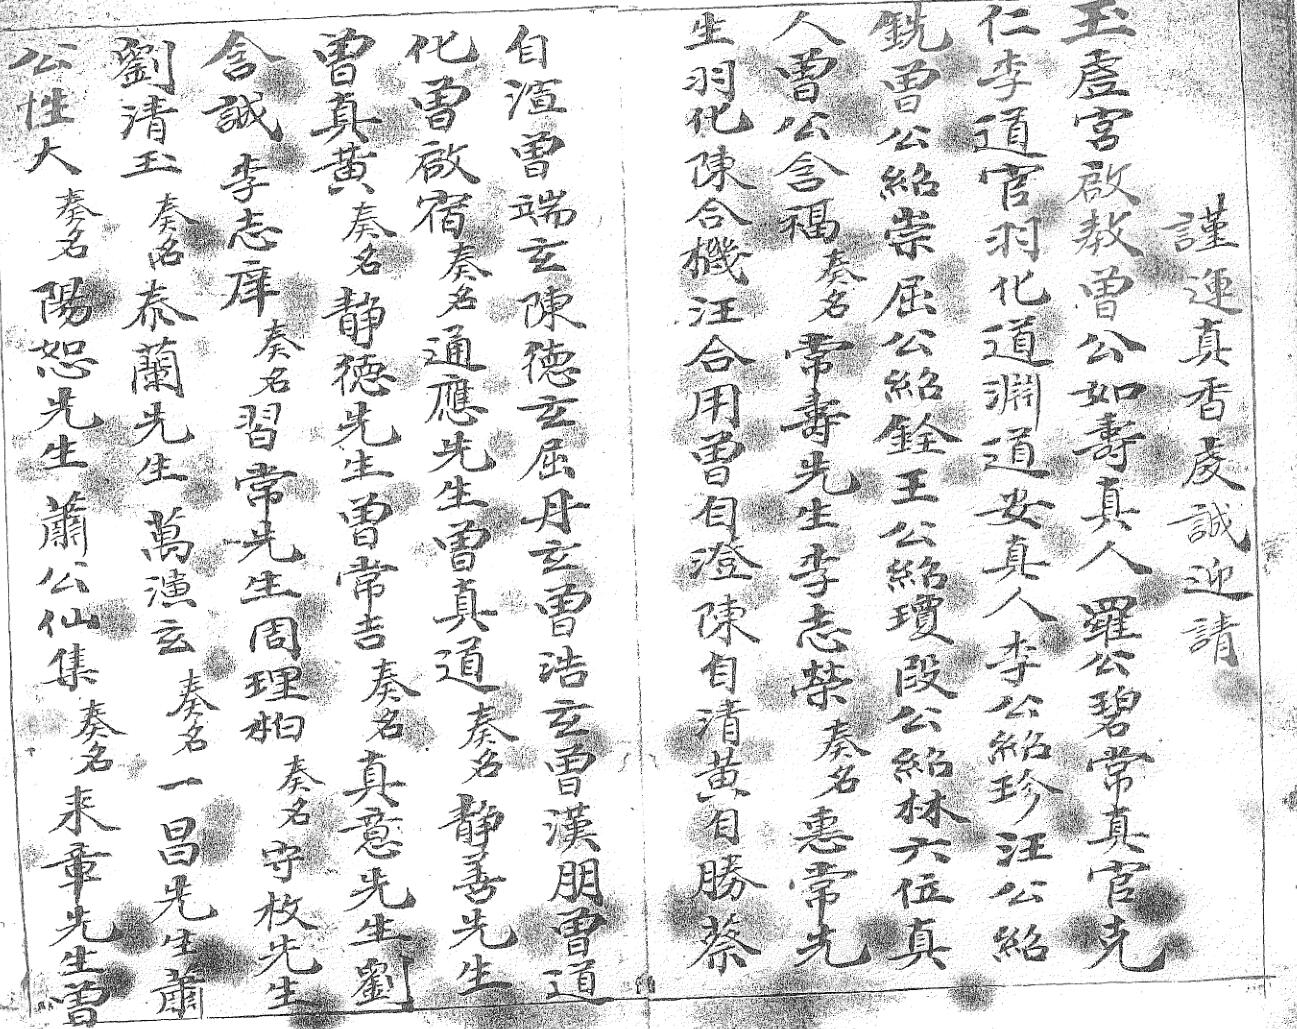 謹運真香虔誠迎請
玉虛宮啟教曾公如壽真人羅公碧常真官克
仁李道官羽化道渊道安真人李公紹珍汪公紹
銑曾公紹崇屈公紹銓王公紹瓊段公紹林六位真
人曾公含福奏名常壽先生李志榮奏名惠常先
生羽化陳合機汪合用曾自澄陳自清黃自勝蔡
自渲曾端玄陳德玄屈丹玄曾浩玄曾漢朋曾道
化曾啟宿奏名通應先生曾真道奏名静善先生
曾真黃奏名静德先生曾常吉奏名真意先生劉
含誠李志庠奏名習常先生周理柏奏名守枚先生
劉清玉奏名泰蘭先生萬演玄奏名一昌先生蕭
公性大奏名陽恕先生蕭公仙集奏名来章先生曾